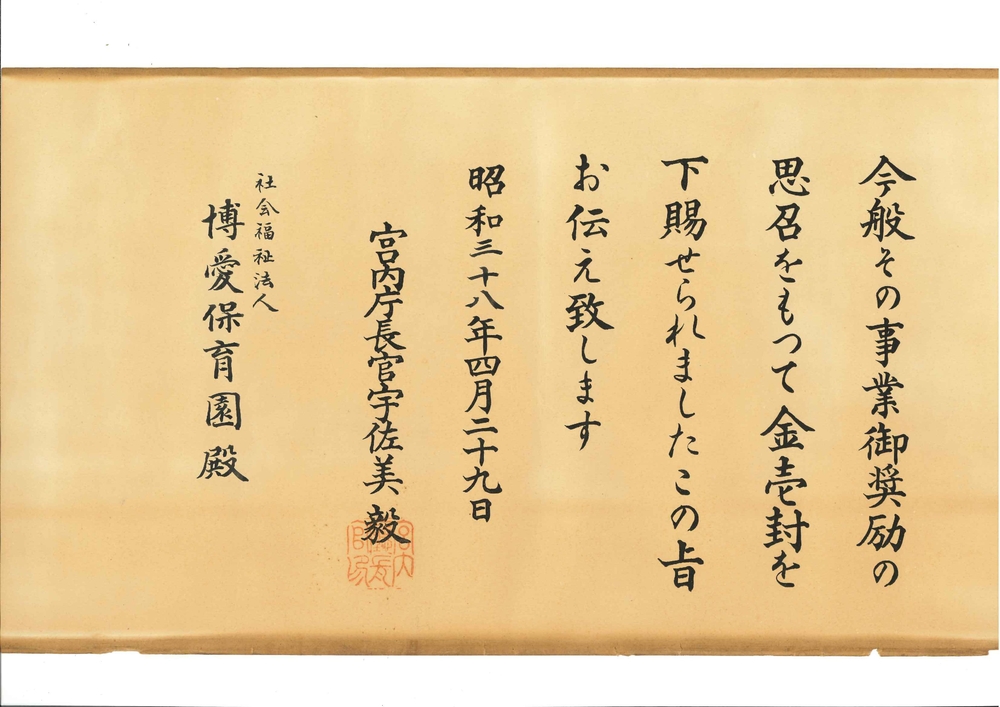 今般その事業御奨励の
思召をもつて金壱封を
下賜せられましたこの旨
お伝え致します
昭和三十八年四月二十九日
宮内庁長官宇佐美毅
社会福祉法人
博愛保育園殿